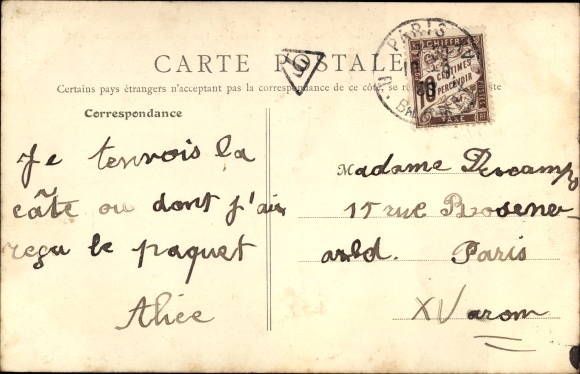 CARTE POSTALE
Certains pays étrangers n'acceptant pas la correspondance de ce côté, se
Correspondance
Je tenvois la
câte ou dont j'ais
reçu le paquet
Alice
PARIS
CHIFFRE
10
CENTIMES
A PERCEVOIR
TAXE
Madame Descamps
15 rue Rosenw-
arld. Paris
XV arom